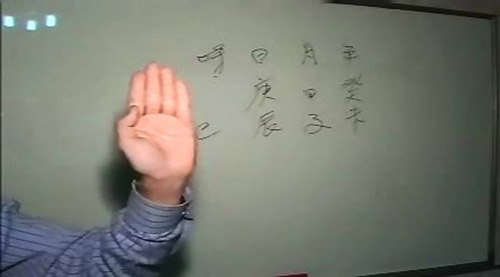 时 日 月 年
庚 癸
辰 子 未